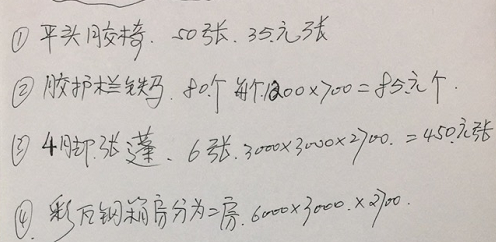 ① 平头胶椅. 50张. 35元张
② 胶护栏铁马. 80个 每个1200×700=85元个.
③ 4脚张蓬. 6张. 3000×3000×2700. =450元张
④. 彩瓦钢箱房分为二房. 6000×3000.×2700.